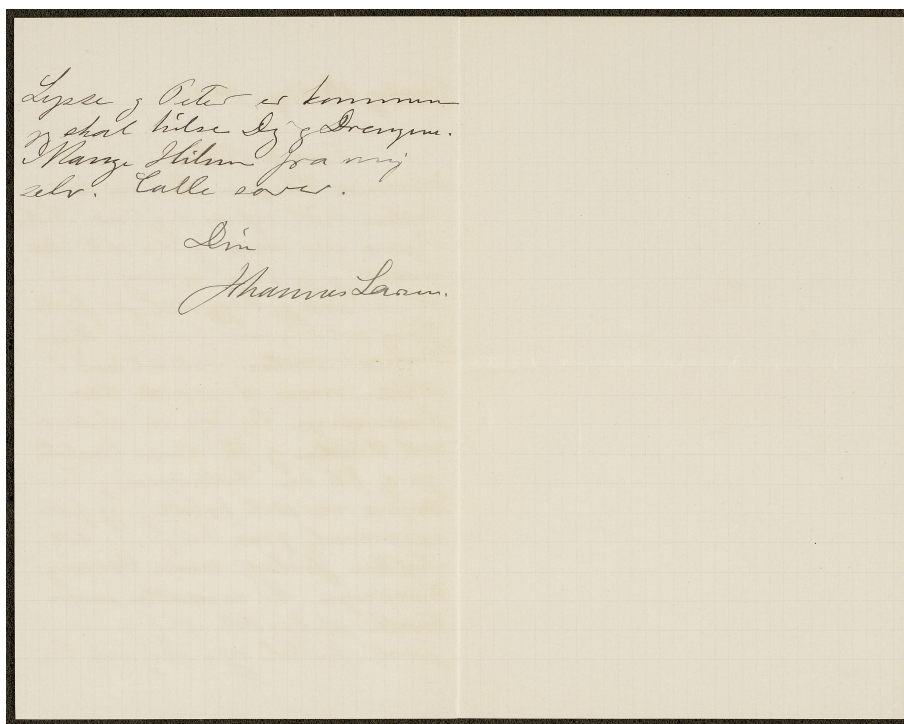 Lysse og Peter er kommen
jeg skal hilse Dig og Drengene.
Mange Hilsner fra mig
selv. Calle sover.
Din
Johannes Larsen.